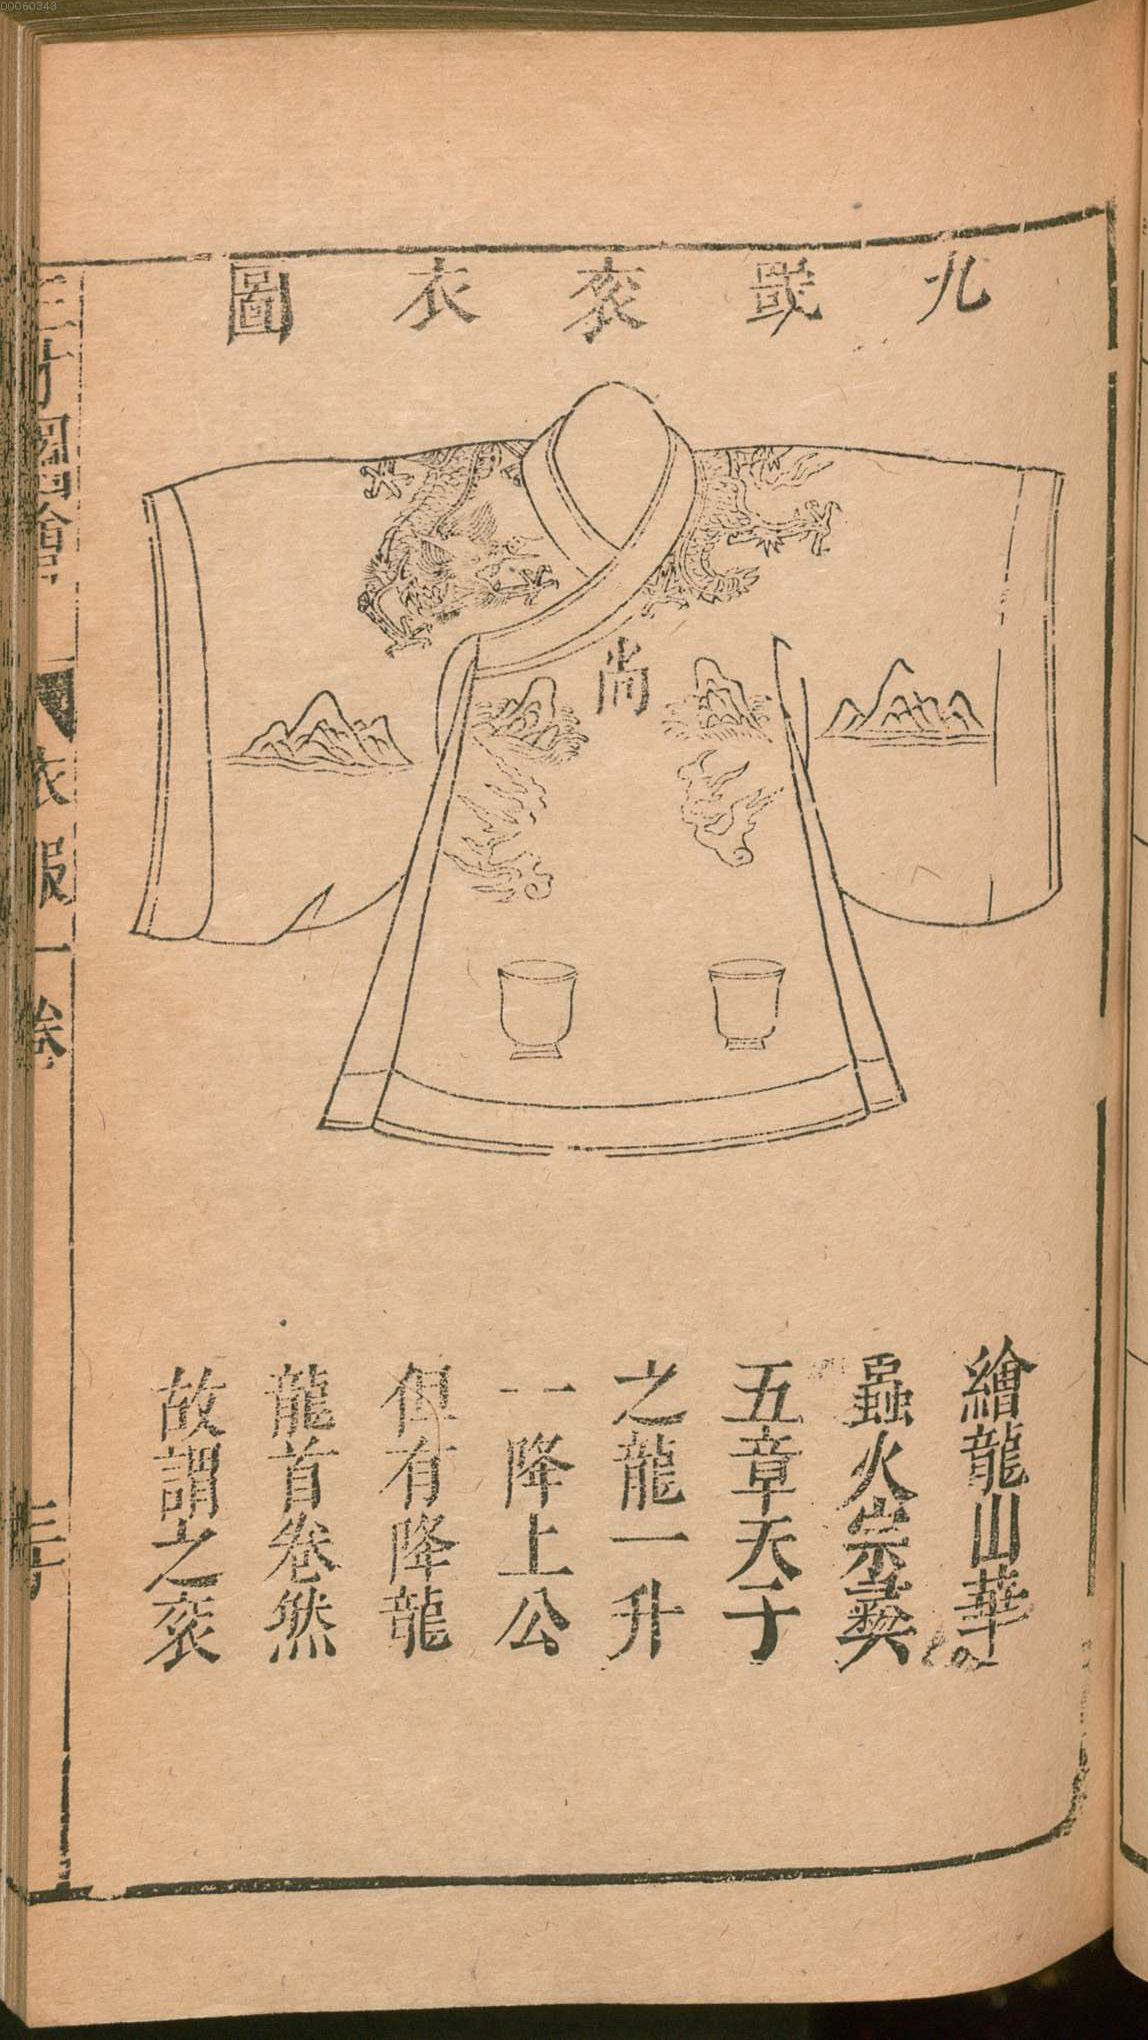 00060343
九罭衮衣圖
尚
繪龍山華
蟲火宗彝
五章天子
之龍一升
一降上公
但有降龍
龍首卷然
故謂之衮
三才圖會
衣服一卷